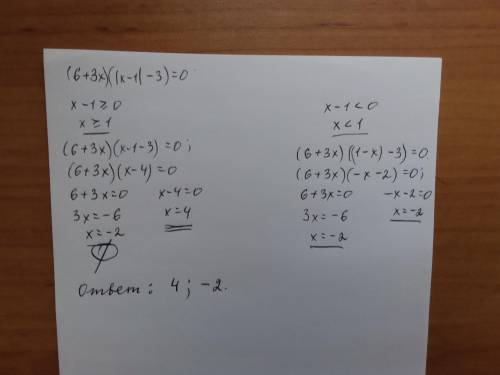 (6+3x)(|x-1|-3)=0
x-1≥0
x≥1
(6+3x)(x-1-3)=0;
(6+3x)(x-4)=0
6+3x=0 x-4=0
3x=-6 x=4
x=-2
x-1<0
x<1
(6+3x)((1-x)-3)=0
(6+3x)(-x-2)=0;
6+3x=0 -x-2=0
3x=-6 x=-2
x=-2
Ответ: 4; -2.